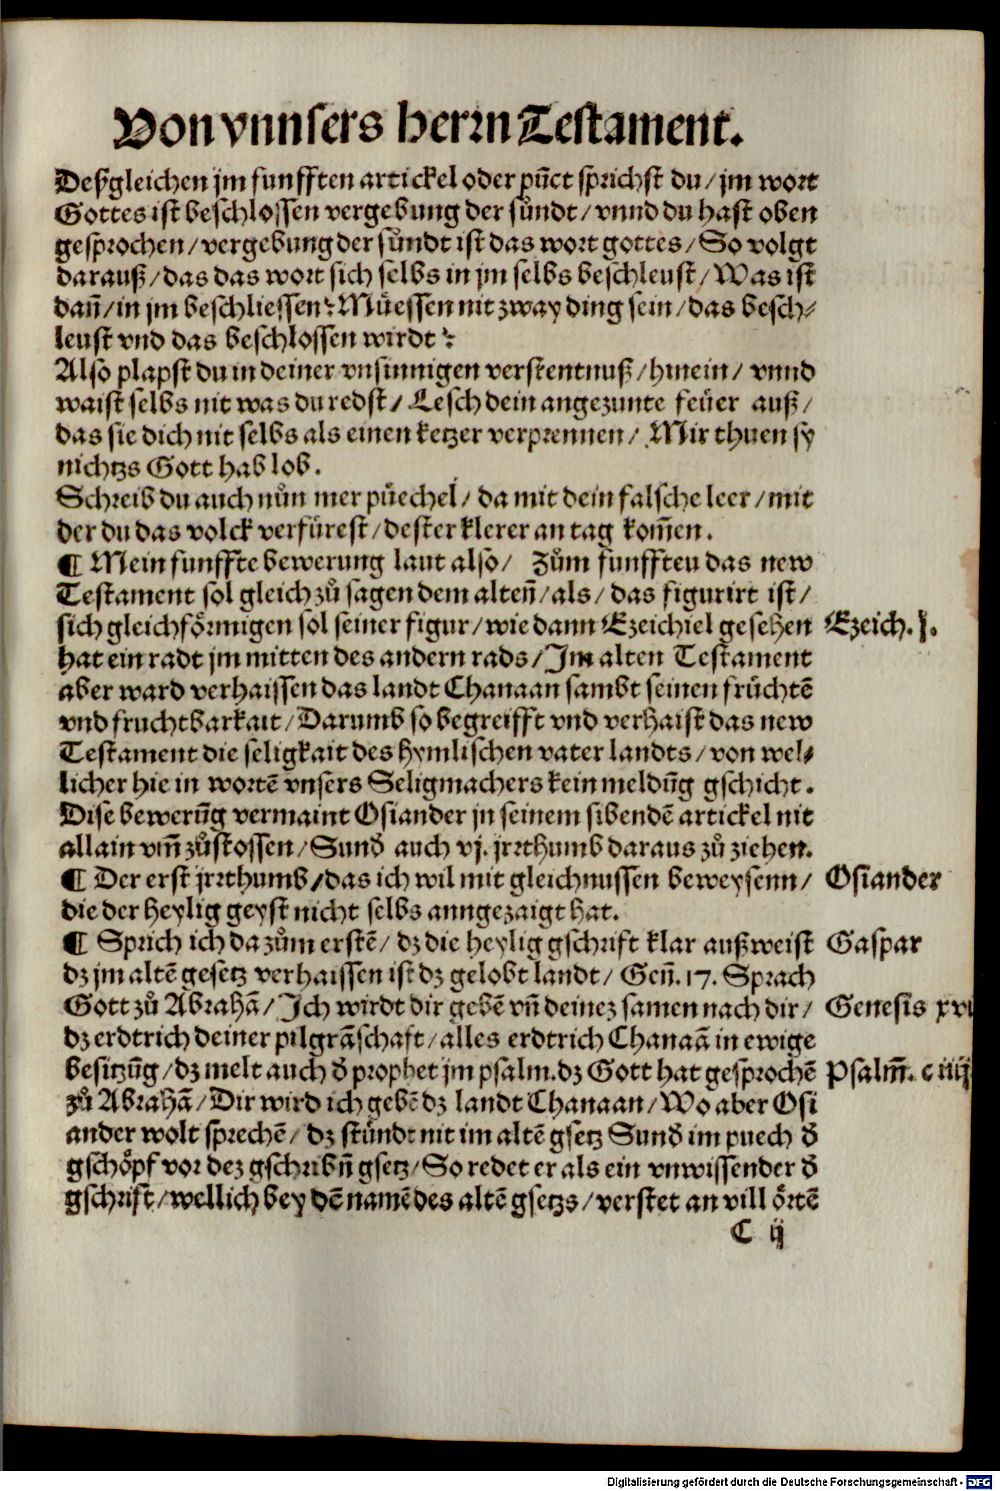 Von vnnsers herrn Testament.
Deßgleichen jm funfften artickel oder pūct sprichst du / jm wort
Gottes ist beschlossen vergebung der sůndt / vnnd du hast oben
gesprochen / vergebung der sůndt ist das wort gottes / So volgt
darauß / das das wort sich selbs in jm selbs beschleust / Was ist
dañ / in jm beschliessen? Müessen nit zway ding sein / das besch⸗
leust vnd das beschlossen wirdt?
Also plapst du in deiner vnsinnigen verstentnuß / hinein / vnnd
waist selbs nit was du redst / Lesch dein angezunte feüer auß /
das sie dich nit selbs als einen ketzer verprennen / Mir thuen sy
nichtzs Gott hab lob.
Schreib du auch nůn mer püechel / da mit dein falsche leer / mit
der du das volck verfürest / dester klerer an tag kom̄en.
¶ Mein funffte bewerung laut also / Zům funfften das new
Testament sol gleich zů sagen dem alteñ / als / das figurirt ist /
sich gleichförmigen sol seiner figur / wie dann Ezeichiel gesehen
Ezeich. j.
hat ein radt jm mitten des andern rads / Jm alten Testament
aber ward verhaissen das landt Chanaan sambt seinen früchtē
vnd fruchtbarkait / Darumb so begreifft vnd verhaist das new
Testament die seligkait des hymlischen vater landts / von wel⸗
licher hie in wortē vnsers Seligmachers kein meldūg gschicht.
Dise bewerūg vermaint Osiander jn seinem sibendē artickel nit
allain vm̄ zůstossen / Sunđ auch vj. jrrthumb daraus zů ziehen.
¶ Der erst jrrthumb / das ich wil mit gleichnussen beweysenn /
Osiander
die der heylig geyst nicht selbs anngezaigt hat.
¶ Sprich ich da zům erstē / dz die heylig gschrift klar außweist
Gaspar
dz jm altē gesetz verhaissen ist dz gelobt landt / Geñ. 17. Sprach
Gott zů Abrahā / Jch wirdt dir gebē vñ deinez samen nach dir /
Genesis xvi
dz erdtrich deiner pilgrāschaft / alles erdtrich Chanaā in ewige
besitzūg / dz melt auch đ prophet jm psalm. dz Gott hat gesprochē
Psalm̄. c iiij
zů Abrahā / Dir wird ich gebē dz landt Chanaan / Wo aber Osi
ander wolt sprechē / dz stündt nit im altē gsetz Sunđ im puech đ
gschöpf vor dez gschribñ gsetz / So redet er als ein vnwissender đ
gschrift / wellich bey dē namē des altē gsetzs / verstet an vill örtē
C ij
Digitalisierung gefördert durch die Deutsche Forschungsgemeinschaft - DFG